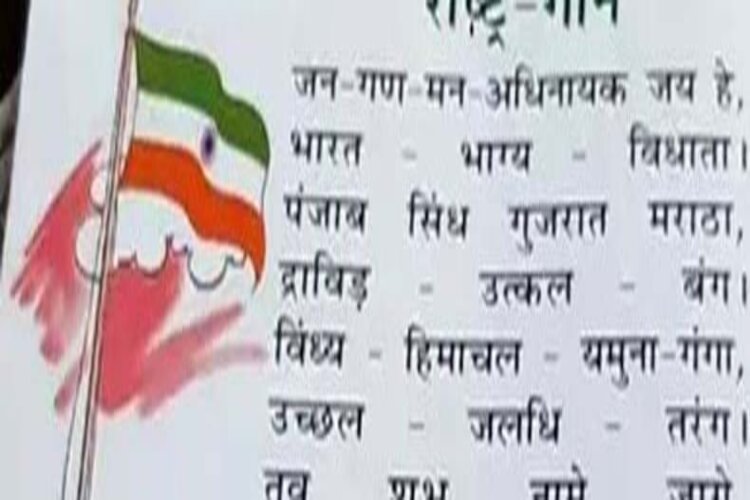 राष्ट्र-गान
जन-गण-मन-अधिनायक जय हे,
भारत - भाग्य - विधाता।
पंजाब सिंध गुजरात मराठा,
द्राविड़ - उत्कल - बंग।
विंध्य - हिमाचल - यमुना-गंगा,
उच्छल - जलधि - तरंग।
तव शुभ नामे जागे